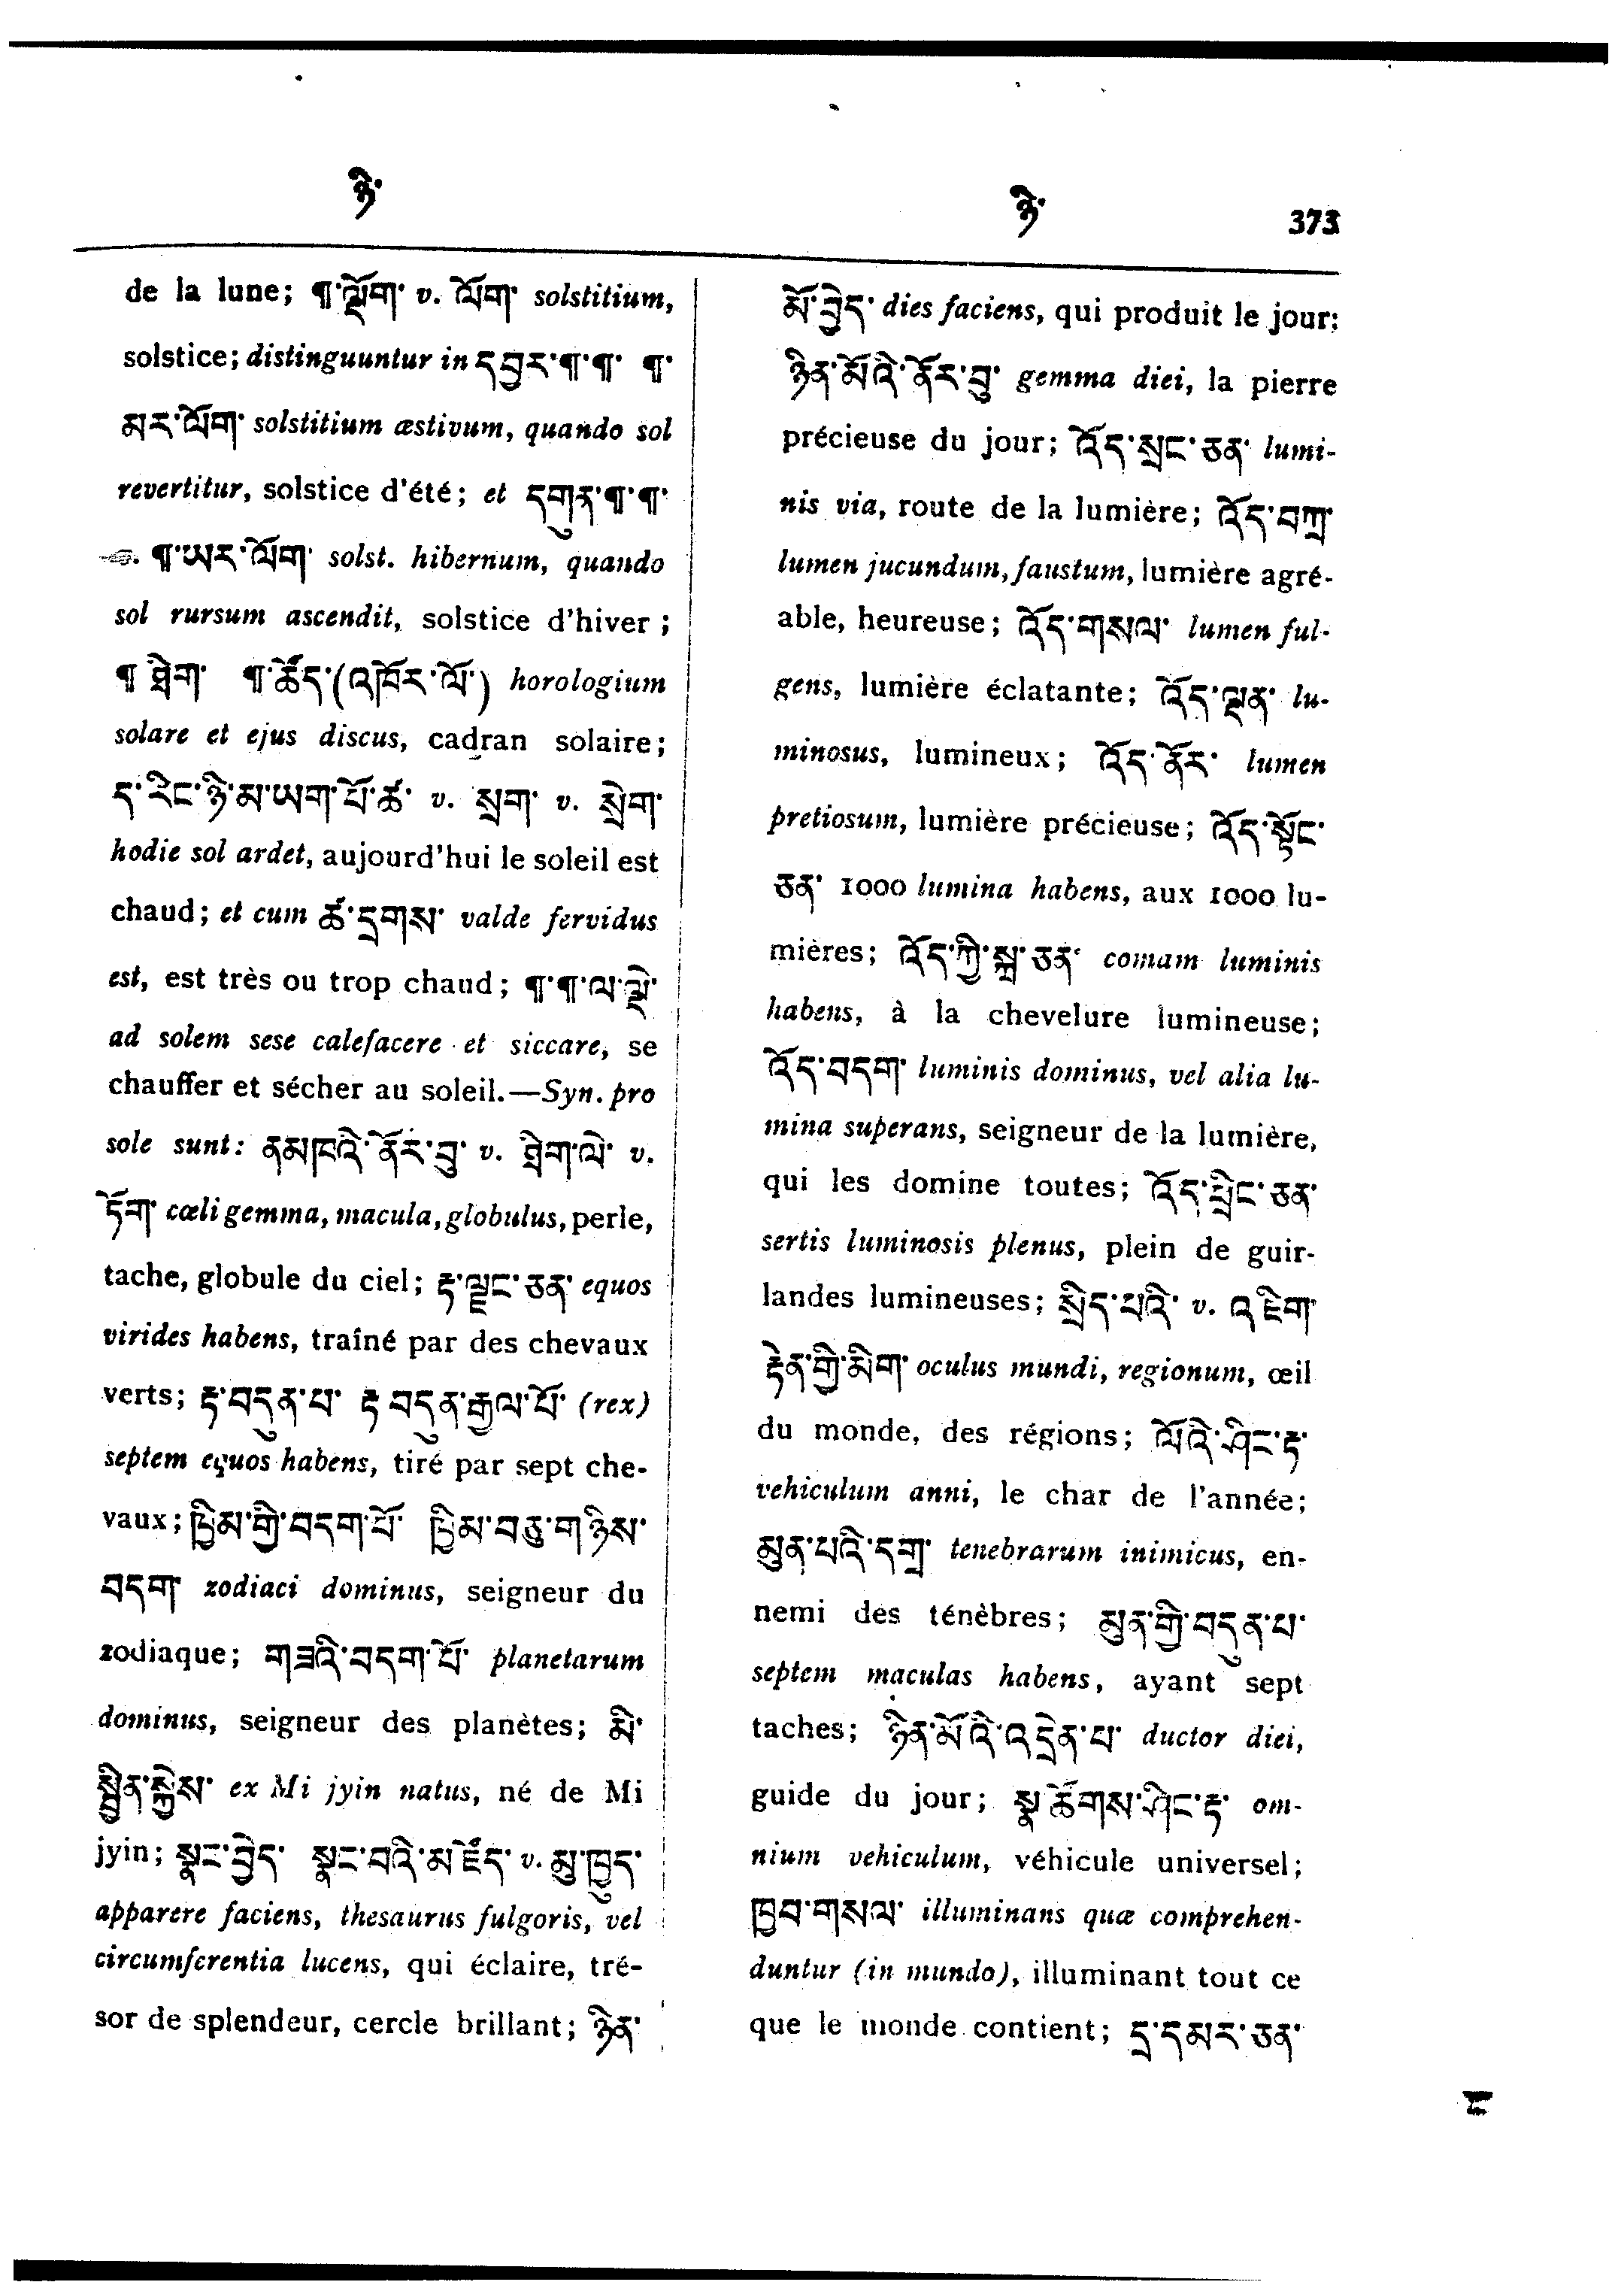 ཉི་
ཉི་ 373
de la lune; ¶་ལྡོག་ v. ལོག་ solstitium,
solstice; distinguuntur in དབྱར་¶་¶་ ¶་
མར་ལོག་ solstitium æstivum, quando sol
revertitur, solstice d'été; et དགུན་¶་¶་
¶་ཡར་ལོག་ solst. hibernum, quando
sol rursum ascendit, solstice d'hiver;
¶ ཐིག་ ¶་ཚོད་(འཁོར་ལོ་) horologium
solare et ejus discus, cadran solaire;
ད་རིང་ཉི་མ་ཡག་པོ་ཚ་ v. སྲག་ v. སྲེག་
hodie sol ardet, aujourd'hui le soleil est
chaud; et cum ཚ་དྲགས་ valde fervidus
est, est très ou trop chaud; ¶་¶་ལ་ལྡེ་
ad solem sese calefacere et siccare, se
chauffer et sécher au soleil.—Syn. pro
sole sunt: ནམཁའི་ནོར་བུ་ v. ཐིག་ལེ་ v.
ཏོག་ cœli gemma, macula, globulus, perle,
tache, globule du ciel; རྟ་ལྗང་ཅན་ equos
virides habens, traîné par des chevaux
verts; རྟ་བདུན་པ་ རྟ བདུན་རྒྱལ་པོ་ (rex)
septem equos habens, tiré par sept che-
vaux; ཁྱིམ་གྱི་བདག་པོ་ ཁྱིམ་བཅུ་གཉིས་
བདག་ zodiaci dominus, seigneur du
zodiaque; གཟའི་བདག་པོ་ planetarum
dominus, seigneur des planètes; མི་
སྦྱིན་སྐྱེས་ ex Mi jyin natus, né de Mi
jyin; སྣང་བྱེད་ སྣང་བའི་མཛོད་ v. མུ་ཁྱུད་
apparere faciens, thesaurus fulgoris, vel
circumferentia lucens, qui éclaire, tré-
sor de splendeur, cercle brillant; ཉིན་
མོ་བྱེད་ dies faciens, qui produit le jour;
ཉིན་མོའི་ནོར་བུ་ gemma diei, la pierre
précieuse du jour; འོད་སྲང་ཅན་ lumi-
nis via, route de la lumière; འོད་བཀྲ་
lumen jucundum, faustum, lumière agré-
able, heureuse; འོད་གསལ་ lumen ful-
gens, lumière éclatante; འོད་ལྡན་ lu-
minosus, lumineux; འོད་ནོར་ lumen
pretiosum, lumière précieuse; འོད་སྟོང་
ཅན་ 1000 lumina habens, aux 1000 lu-
mières; འོད་ཀྱི་སྐྲ་ཅན་ comam luminis
habens, à la chevelure lumineuse;
འོད་བདག་ luminis dominus, vel alia lu-
mina superans, seigneur de la lumière,
qui les domine toutes; འོད་ཕྲེང་ཅན་
sertis luminosis plenus, plein de guir-
landes lumineuses; སྲིད་པའི་ v. འཇིག་
རྟེན་གྱི་མིག་ oculus mundi, regionum, œil
du monde, des régions; ལོའི་ཤིང་རྟ་
vehiculum anni, le char de l'année;
མུན་པའི་དགྲ་ tenebrarum inimicus, en-
nemi des ténèbres; མུན་གྱི་བདུན་པ་
septem maculas habens, ayant sept
taches; ཉིན་མོའི་འདྲེན་པ་ ductor diei,
guide du jour; སྣ་ཚོགས་ཤིང་རྟ་ om-
nium vehiculum, véhicule universel;
ཁྱབ་གསལ་ illuminans quæ comprehen-
duntur (in mundo), illuminant tout ce
que le monde contient; དྲ་དམར་ཅན་